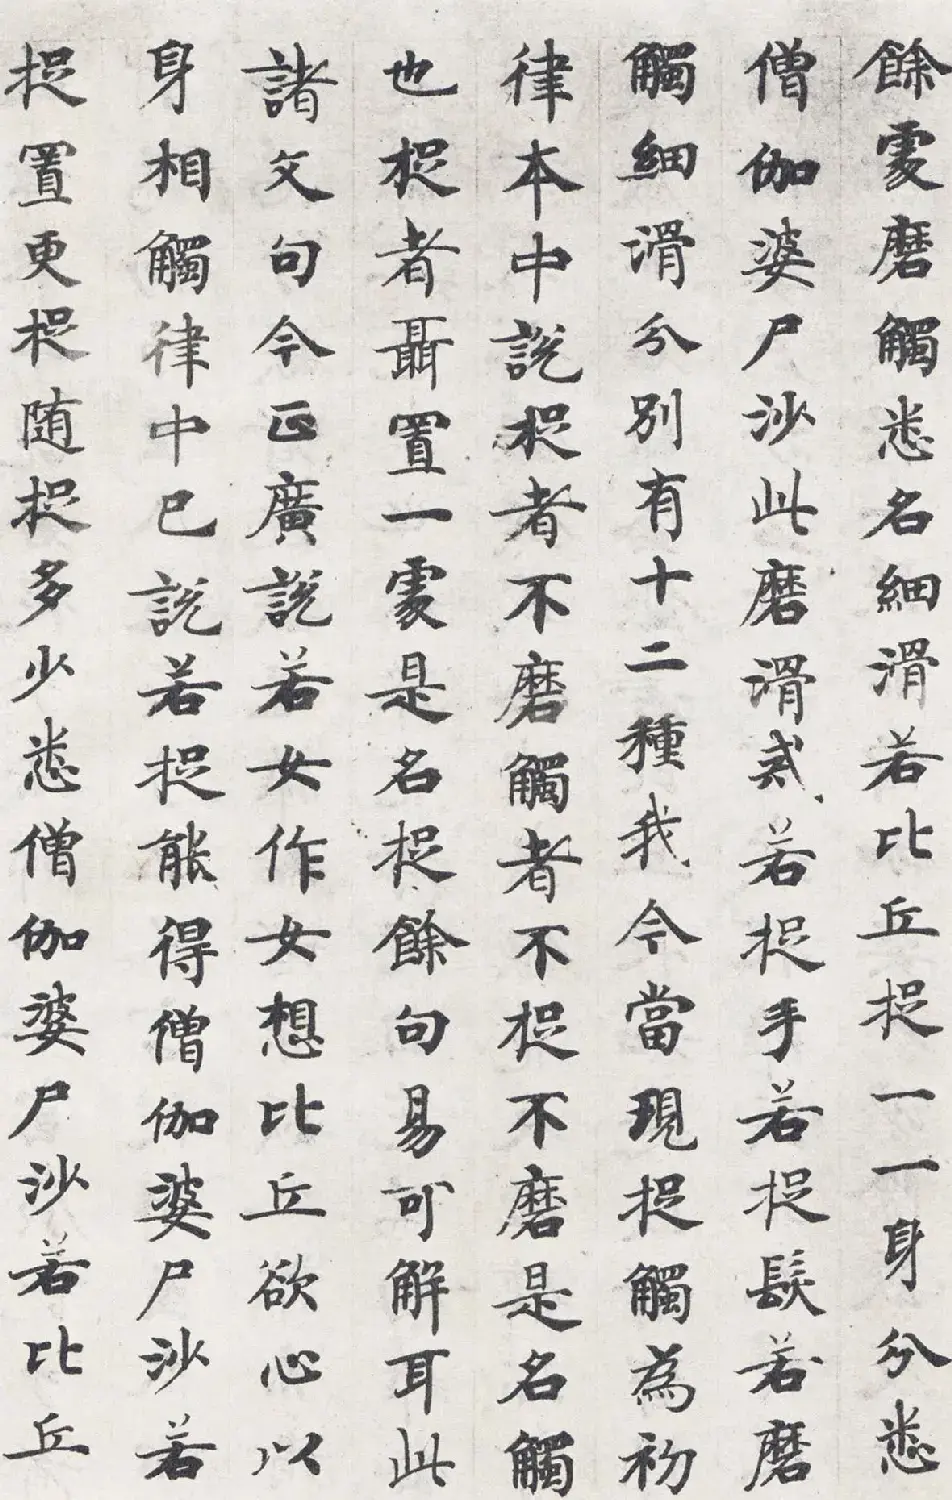 餘處磨觸悉名細滑若比丘捉一一身分悉
僧伽婆尸沙此磨滑戒若捉手若捉髮若磨
觸細滑分別有十二種我今當現捉觸為初
律本中說捉者不磨觸者不捉不磨是名觸
也捉者聶置一處是名捉餘句易可解耳此
諸文句今正廣說若女作女想比丘欲心以
身相觸律中已說若捉能得僧伽婆尸沙若
捉置更捉随捉多少悉僧伽婆尸沙若比丘